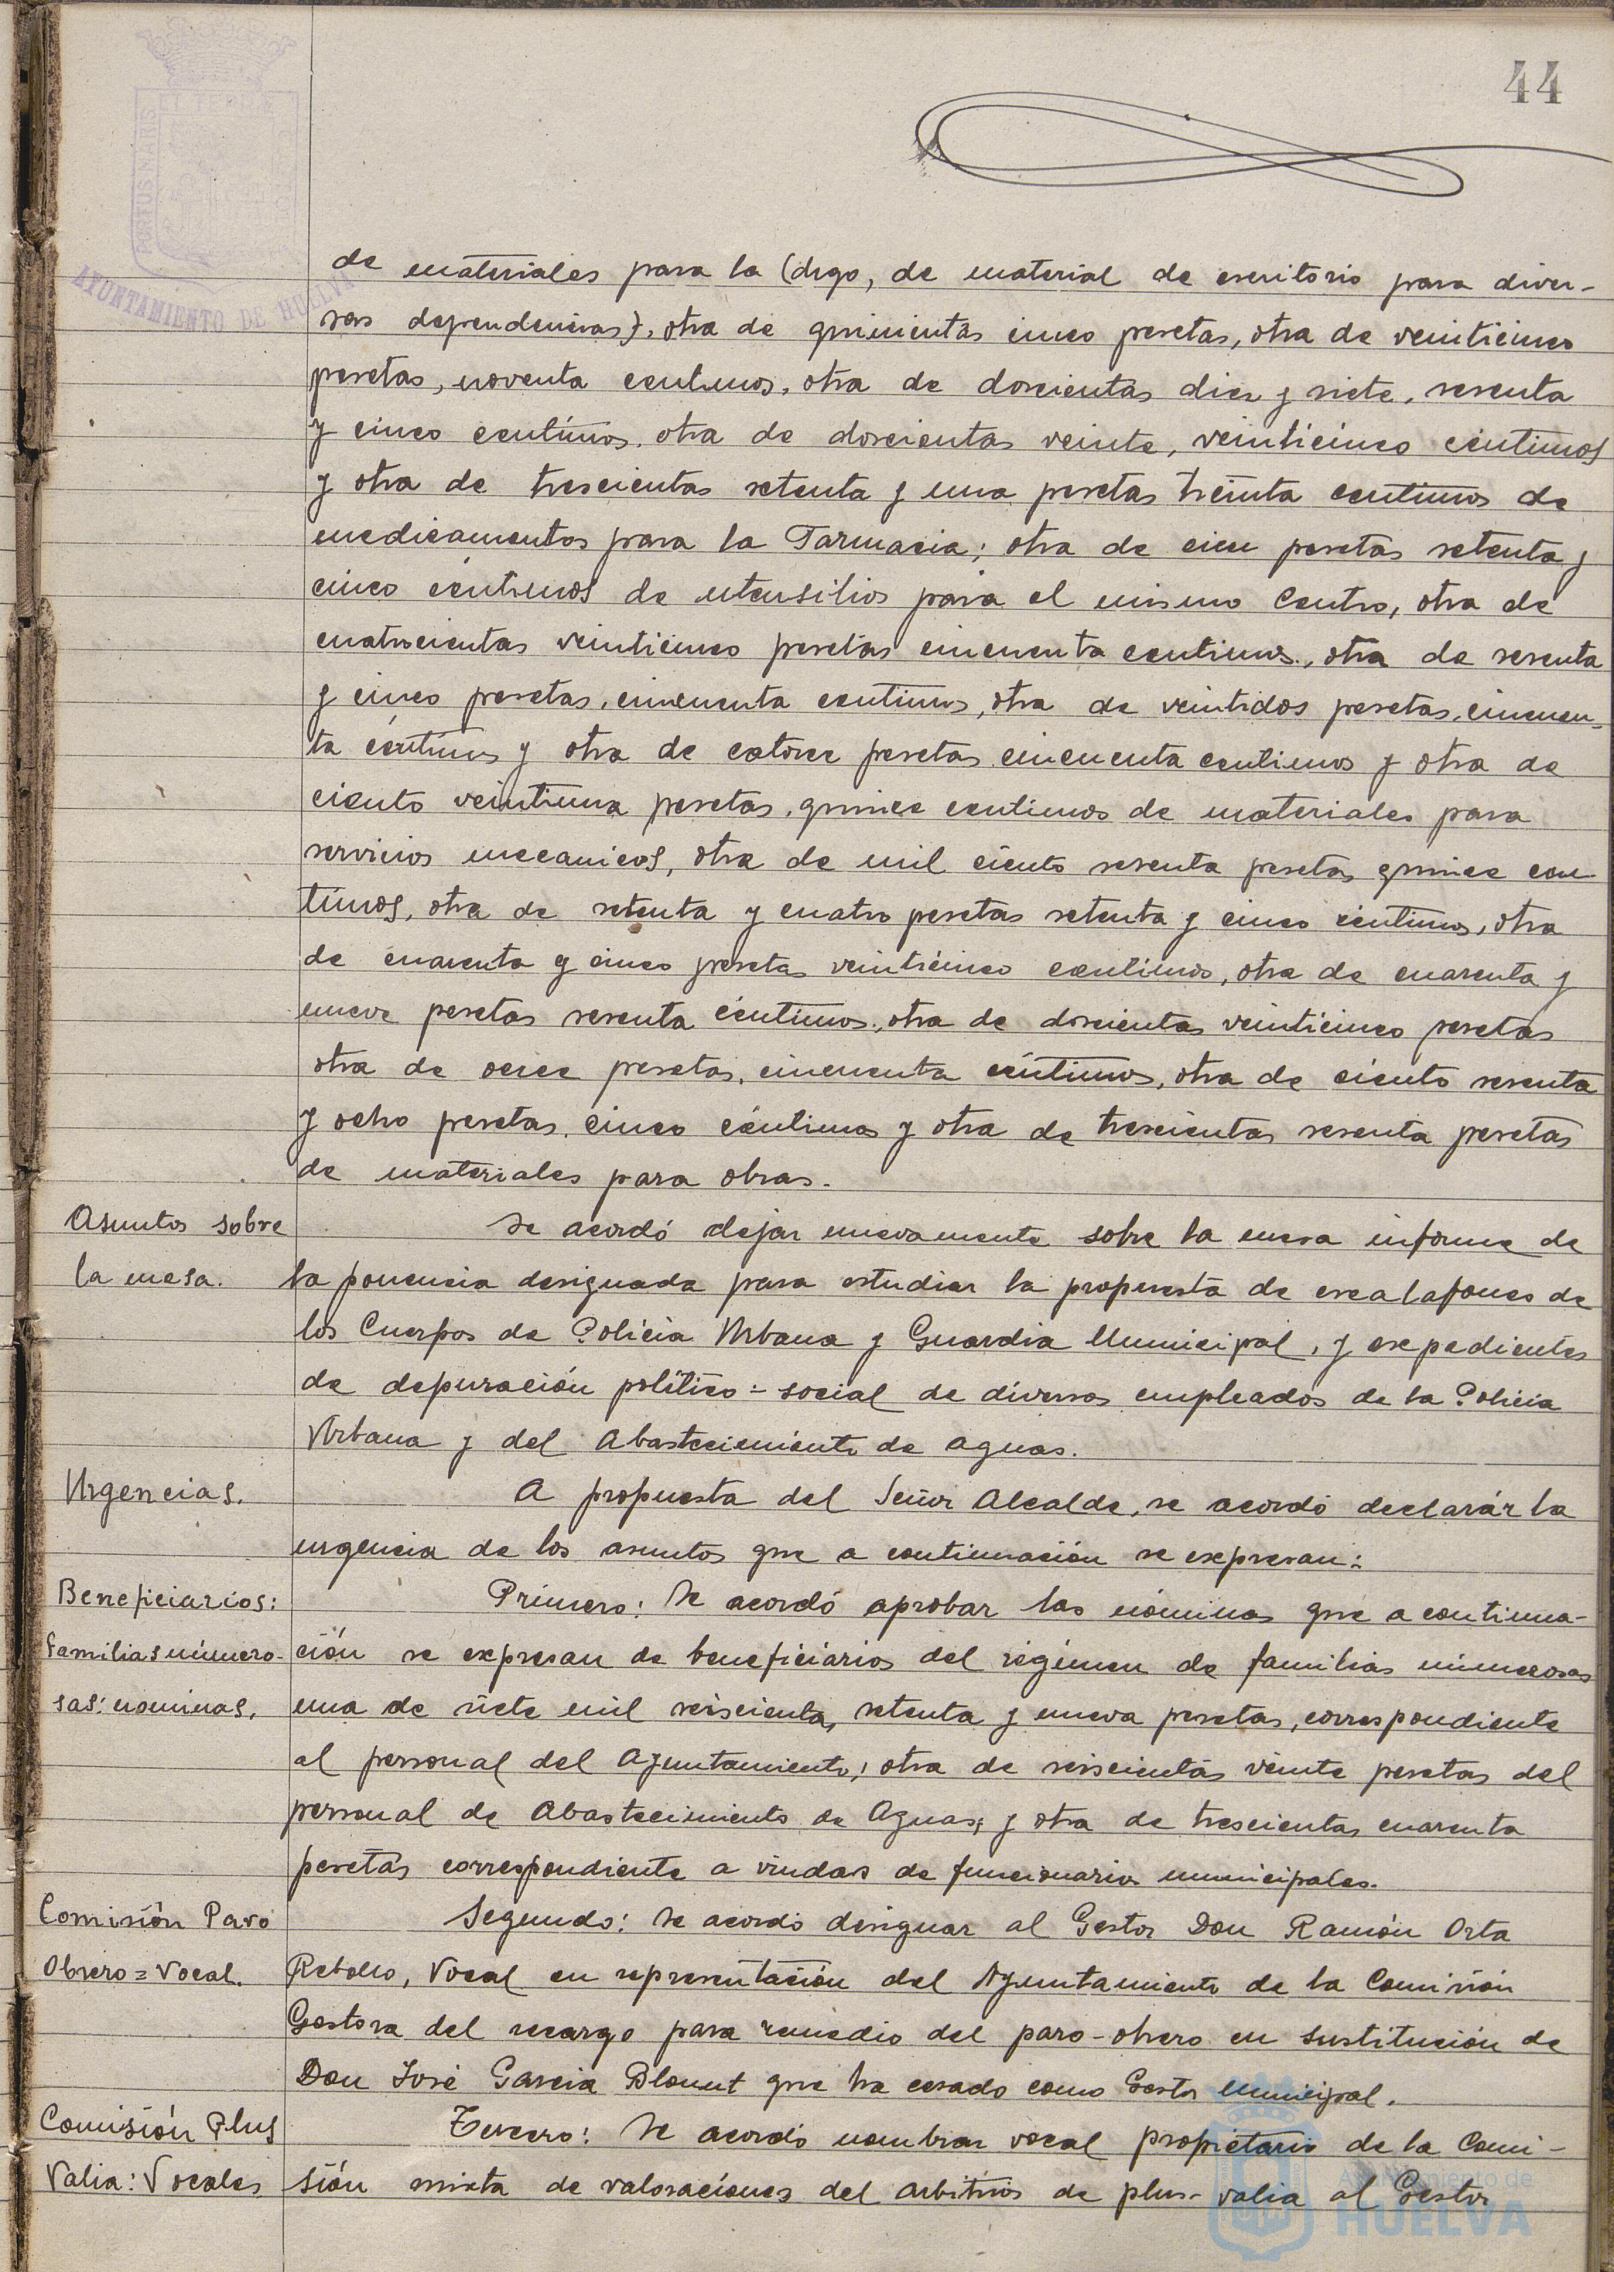 44
PORTUS MARIS
ET TERRÆ
AYUNTAMIENTO DE HUELVA
de materiales para la (digo, de material de escritorio para diver-
sas dependencias), otra de quinientas cinco pesetas, otra de veinticinco
pesetas, noventa centimos, otra de doscientas diez y siete, sesenta
y cinco centimos, otra de doscientas veinte, veinticinco centimos
y otra de trescientas setenta y una pesetas treinta centimos de
medicamentos para la Farmacia; otra de cien pesetas setenta y
cinco centimos de utensilios para el mismo Centro, otra de
cuatrocientas veinticinco pesetas cincuenta centimos, otra de sesenta
y cinco pesetas, cincuenta centimos, otra de veintidos pesetas, cincuen-
ta céntimos y otra de catorce pesetas cincuenta centimos y otra de
ciento veintiuna pesetas, quince centimos de materiales para
servicios mecanicos, otra de mil ciento sesenta pesetas quince cen-
timos, otra de setenta y cuatro pesetas setenta y cinco centimos, otra
de cuarenta y cinco pesetas veinticinco centimos, otra de cuarenta y
nueve pesetas sesenta céntimos, otra de doscientas veinticinco pesetas
otra de once pesetas, cincuenta céntimos, otra de ciento sesenta
y ocho pesetas, cinco céntimos y otra de trescientas sesenta pesetas
de materiales para obras.
Asuntos sobre
la mesa.
Se acordó dejar nuevamente sobre la mesa informe de
la ponencia designada para estudiar la propuesta de escalafones de
los Cuerpos de Policia Urbana y Guardia Municipal, y expedientes
de depuración politico=social de diversos empleados de la Policia
Urbana y del Abastecimiento de aguas.
Urgencias.
A propuesta del Señor Alcalde, se acordó declarár la
urgencia de los asuntos que a continuación se expresan:
Beneficiarios:
familias número-
sas: nominas.
Primero: Se acordó aprobar las nóminas que a continua-
ción se expresan de beneficiarios del régimen de familias numerosas
una de siete mil seiscientas, setenta y nueva pesetas, correspondiente
al personal del Ayuntamiento; otra de seiscientas veinte pesetas del
personal de Abastecimiento de Aguas; y otra de trescientas cuarenta
pesetas correspondiente a viudas de funcionarios municipales.
Comisión Paro
Obrero = Vocal.
Segundo: Se acordó designar al Gestor Don Ramón Orta
Rebollo, Vocal en representación del Ayuntamiento de la Comisión
Gestora del recargo para remedio del paro-obrero en sustitución de
Don José Garcia Blount que ha cesado como Gestor Municipal.
Comisión Plus
Valia: Vocales
Tercero: Se acordó nombrar vocal propietario de la Comi-
sión mixta de valoraciones del arbitrios de plus-valia al Gestor
Ayuntamiento de
HUELVA